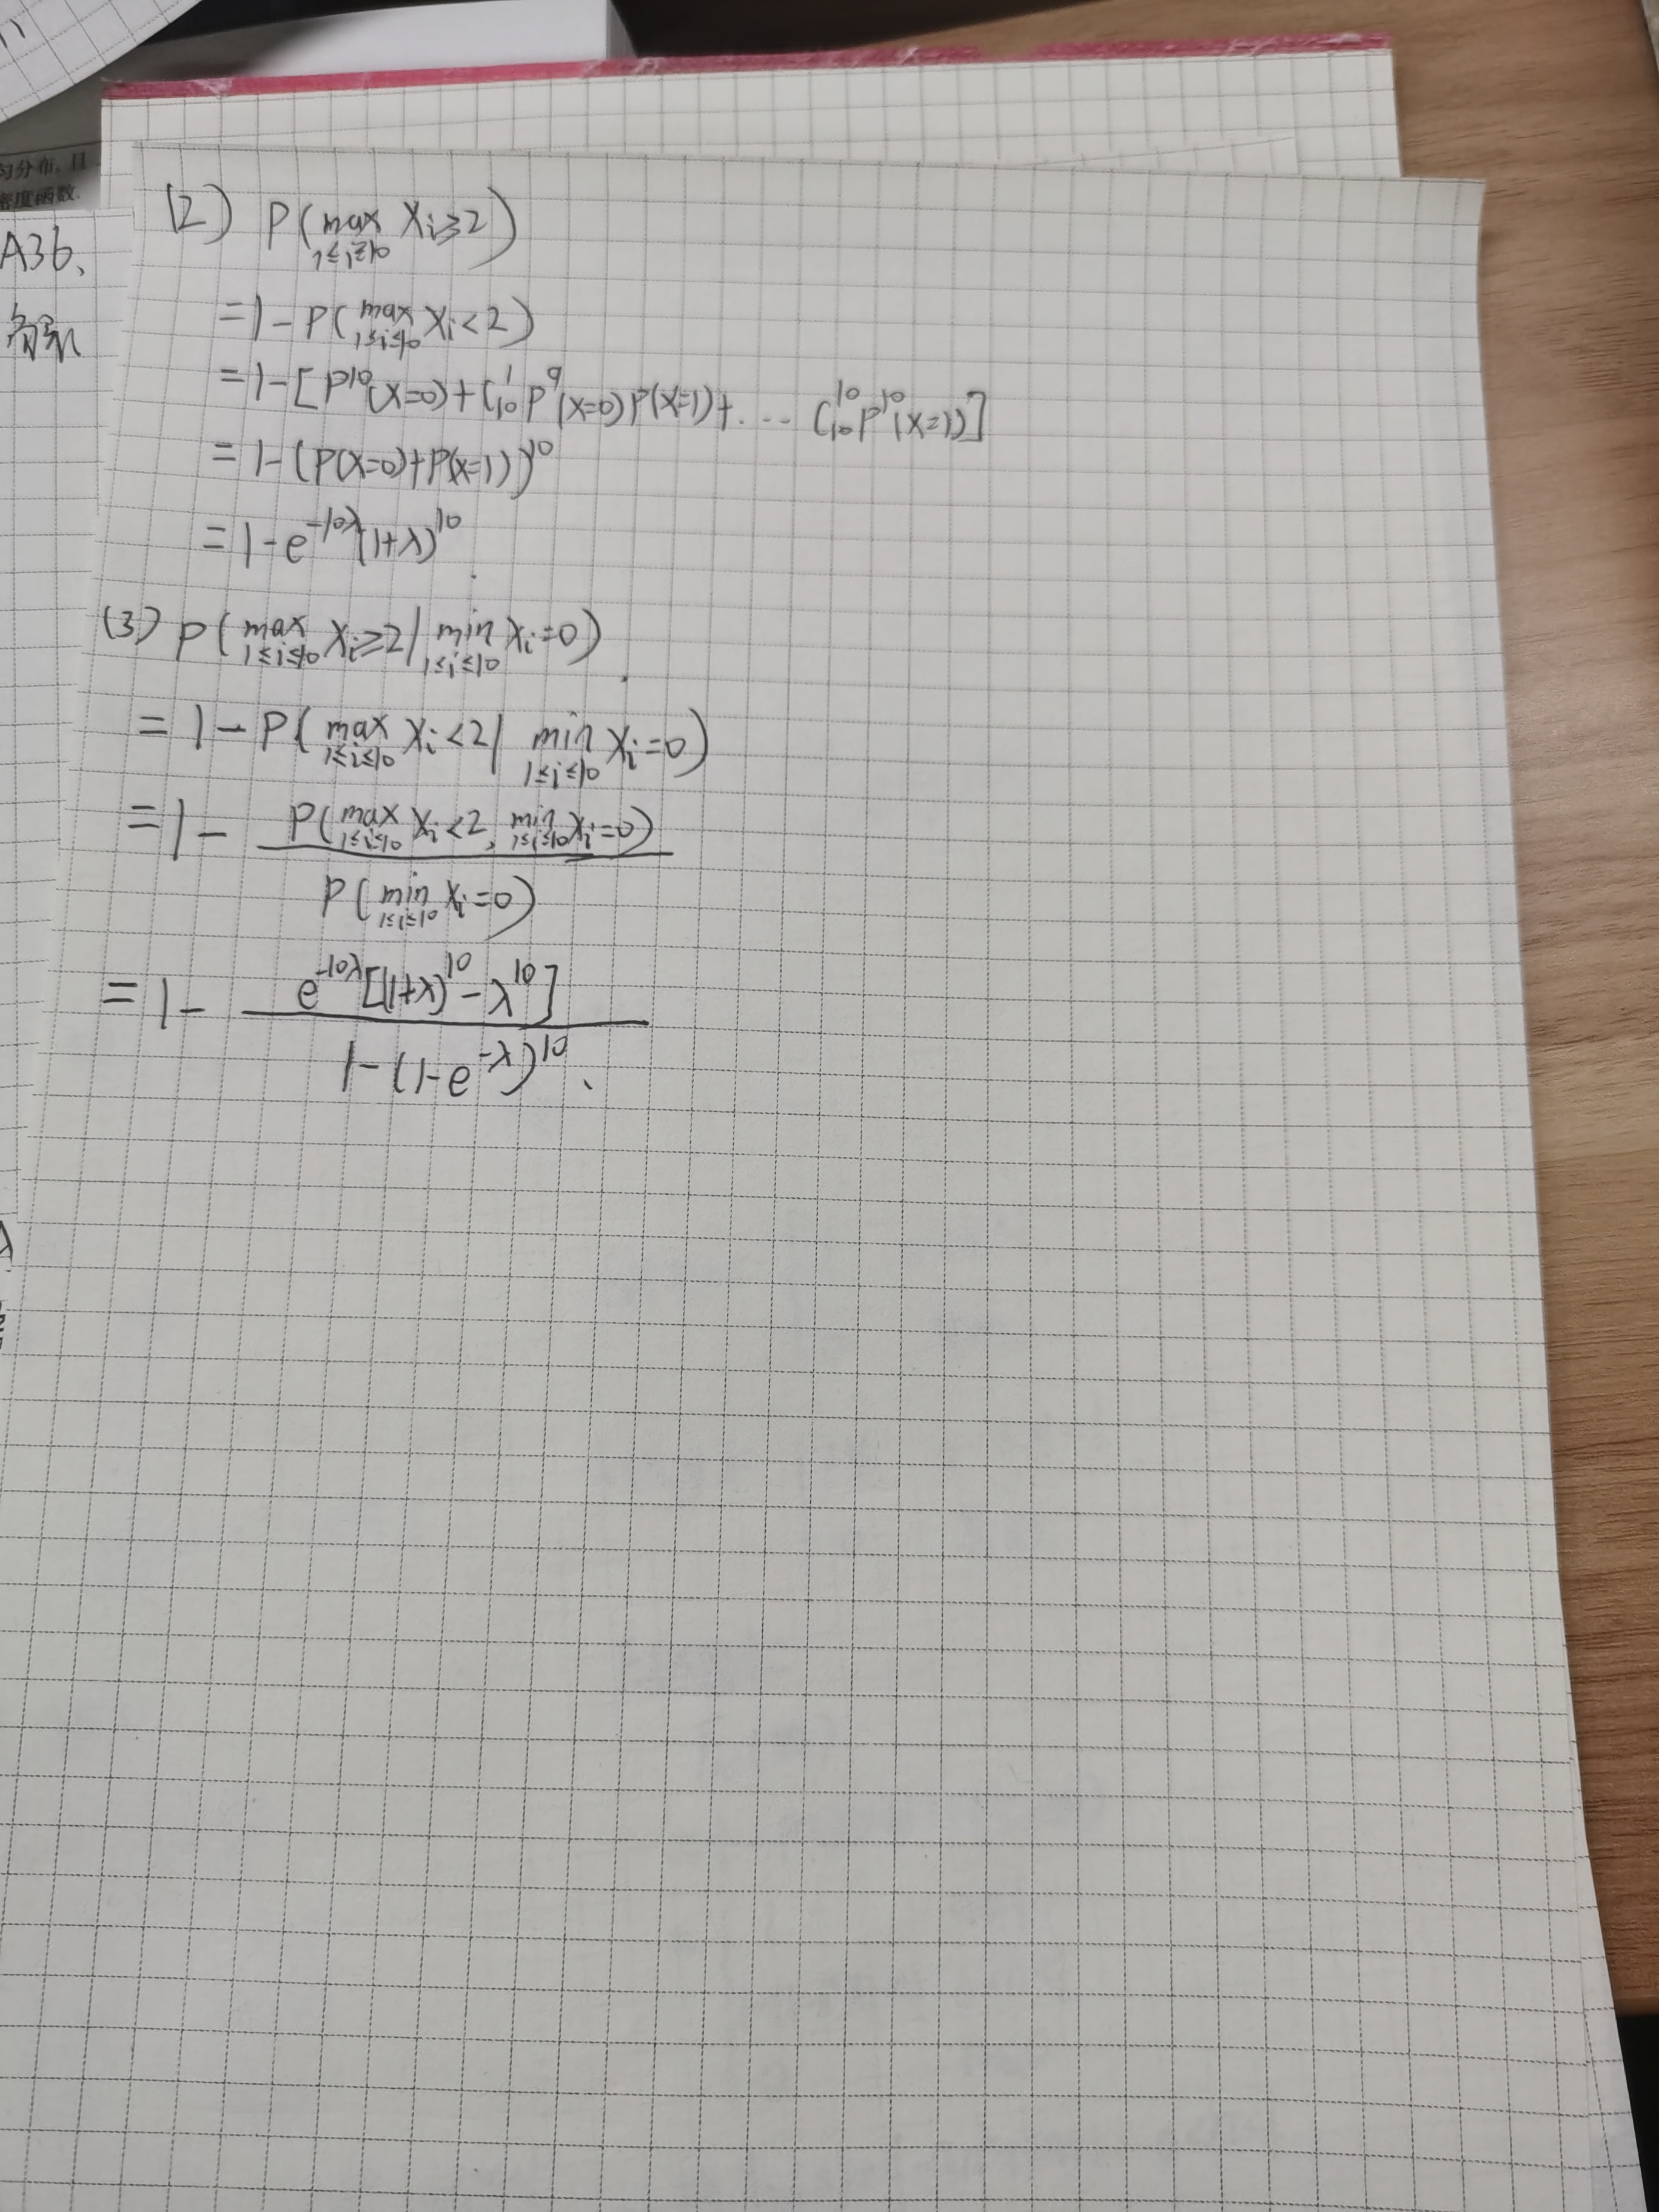 匀分布,且
密度函数.
A36、
解
(2) P(max_{1≤i≤10} Xi≥2)
=1-P(max_{1≤i≤10} Xi<2)
=1-[P^{10}(X=0)+C_{10}^{1}P^{9}(X=0)P(X=1)+... C_{10}^{10}P^{10}(X=1)]
=1-(P(X=0)+P(X=1))^{10}
=1-e^{-10λ}(1+λ)^{10}
(3) P(max_{1≤i≤10} Xi≥2|min_{1≤i≤10} Xi=0)
=1-P(max_{1≤i≤10} Xi<2|min_{1≤i≤10} Xi=0)
=1-
P(max_{1≤i≤10} Xi<2,min_{1≤i≤10} Xi=0)
P(min_{1≤i≤10} Xi=0)
=1-
e^{-10λ}[(1+λ)^{10}-λ^{10}]
1-(1-e^{-λ})^{10}.